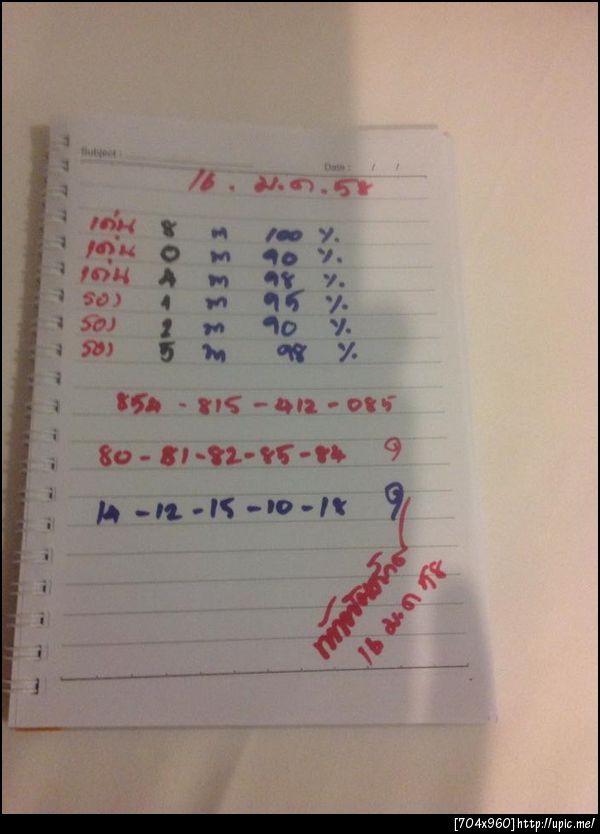 Subject :
Date : / /
16 . ม.ค. 58
เด่น 8 ท 100 %.
เด่น 0 ท 90 %.
เด่น 4 ท 98 %.
รอง 1 ท 95 %.
รอง 2 ท 90 %.
รอง 5 ท 98 %.
854 - 815 - 412 - 085
80 - 81 - 82 - 85 - 84
14 - 12 - 15 - 10 - 18
16 ม.ค 58
[704x960]http://upic.me/